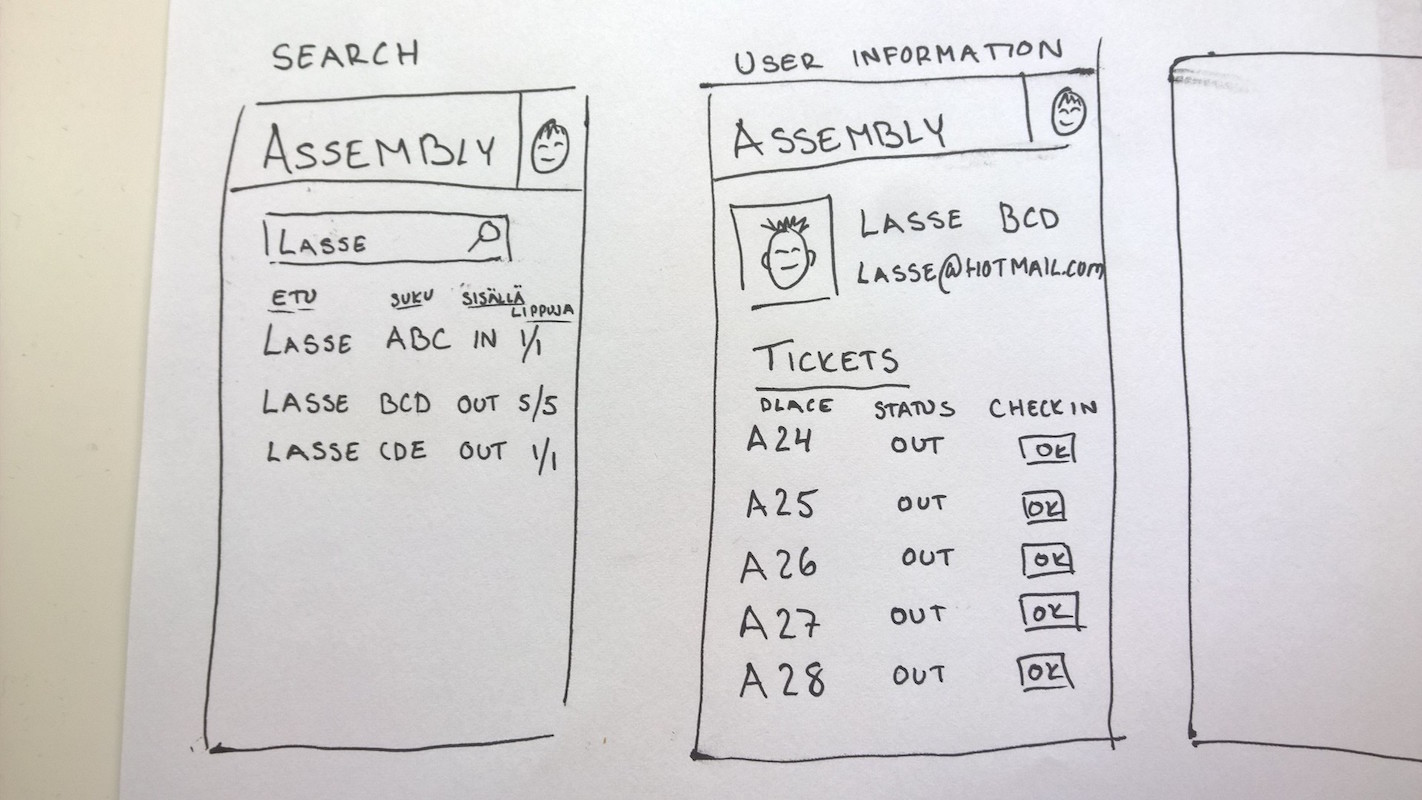 SEARCH
ASSEMBLY
LASSE
ETU SUKU SISÄLLÄ LIPPUJA
LASSE ABC IN 1/1
LASSE BCD OUT 5/5
LASSE CDE OUT 1/1
USER INFORMATION
ASSEMBLY
LASSE BCD
LASSE@HOTMAIL.COM
TICKETS
PLACE STATUS CHECK IN
A24 OUT OK
A25 OUT OK
A26 OUT OK
A27 OUT OK
A28 OUT OK